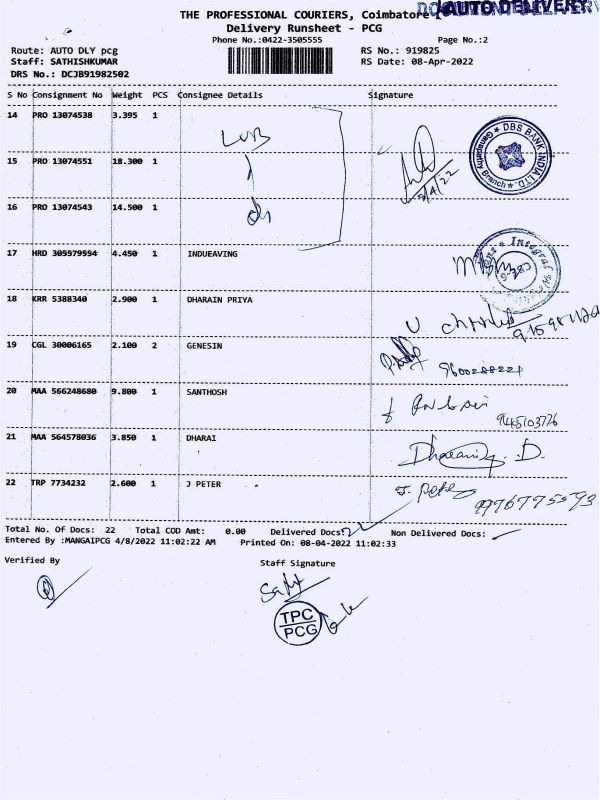 AUTO DELIVERY
THE PROFESSIONAL COURIERS, Coimbatore
Delivery Runsheet - PCG
Phone No.:0422-3505555 Page No.:2
Route: AUTO DLY pcg RS No.: 919825
Staff: SATHISHKUMAR RS Date: 08-Apr-2022
DRS No.: DCJB91982502
S No Consignment No Weight PCS Consignee Details Signature
14 PRO 13074538 3.395 1
15 PRO 13074551 18.300 1
16 PRO 13074543 14.500 1
DBS BANK INDIA LTD. Branch
17 HRD 305579554 4.450 1 INDUEAVING
Integral
18 KRR 5388340 2.900 1 DHARAIN PRIYA
19 CGL 30006165 2.100 2 GENESIN
20 MAA 566248680 9.800 1 SANTHOSH
9445103726
21 MAA 564578036 3.850 1 DHARAI
D.
22 TRP 7734232 2.600 1 J PETER
J. Peter
Total No. Of Docs: 22 Total COD Amt: 0.00 Delivered Docs: 22 Non Delivered Docs:
Entered By :MANGAIPCG 4/8/2022 11:02:22 AM Printed On: 08-04-2022 11:02:33
Verified By Staff Signature
TPC
PCG